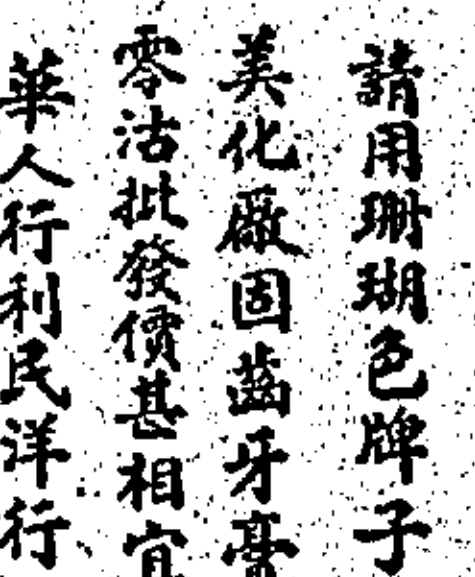 請用珊瑚色牌子
美化廠固齒牙膏
零沽批發價甚相宜
華人行利民洋行